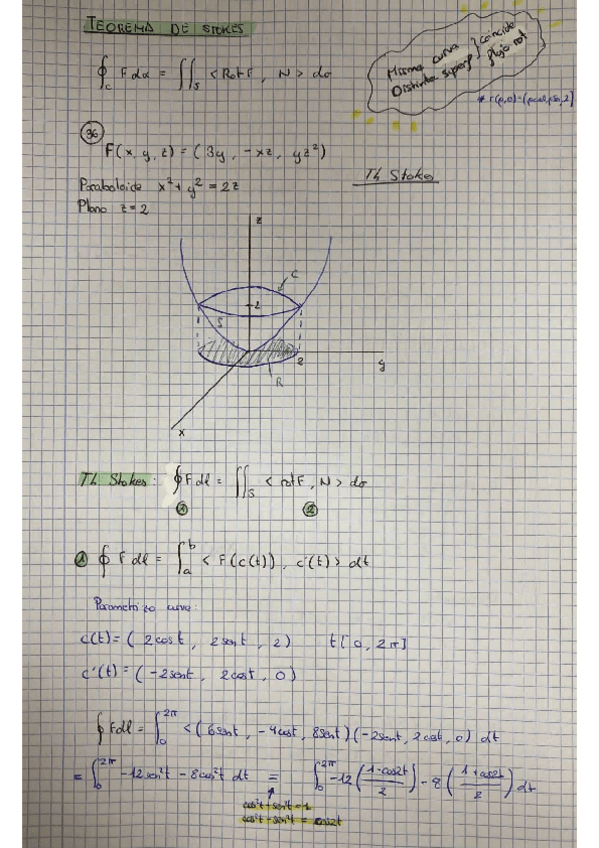 TEOREMA DE STOKES
∮c F dα = ∬s < Rot F , N > dσ
Misma curva } coincide
Distinta superf } flujo rot
36
F(x, y, z) = ( 3y , -xz , yz²)
Th Stokes
Paraboloide x² + y² = 2z
Plano z = 2
z
C
2
S
2
y
R
x
Th Stokes: ∮ F dl = ∬s < rot F , N > dσ
1 2
1 ∮ F dl = ∫ₐᵇ < F(c(t)) , c'(t) > dt
Parametrizo curva:
c(t) = ( 2cost , 2sent , 2 ) t [0, 2π]
c'(t) = ( -2sent , 2cost , 0 )
∮ F dl = ∫₀²π < (6sent , -4cost , 8sent) (-2sent, 2cost, 0) dt
= ∫₀²π -12sen²t - 8cos²t dt = ∫₀²π -12 ( 1-cos2t / 2 ) - 8 ( 1+cos2t / 2 ) dt
cos²t + sen²t = 1
cos²t - sen²t = cos2t